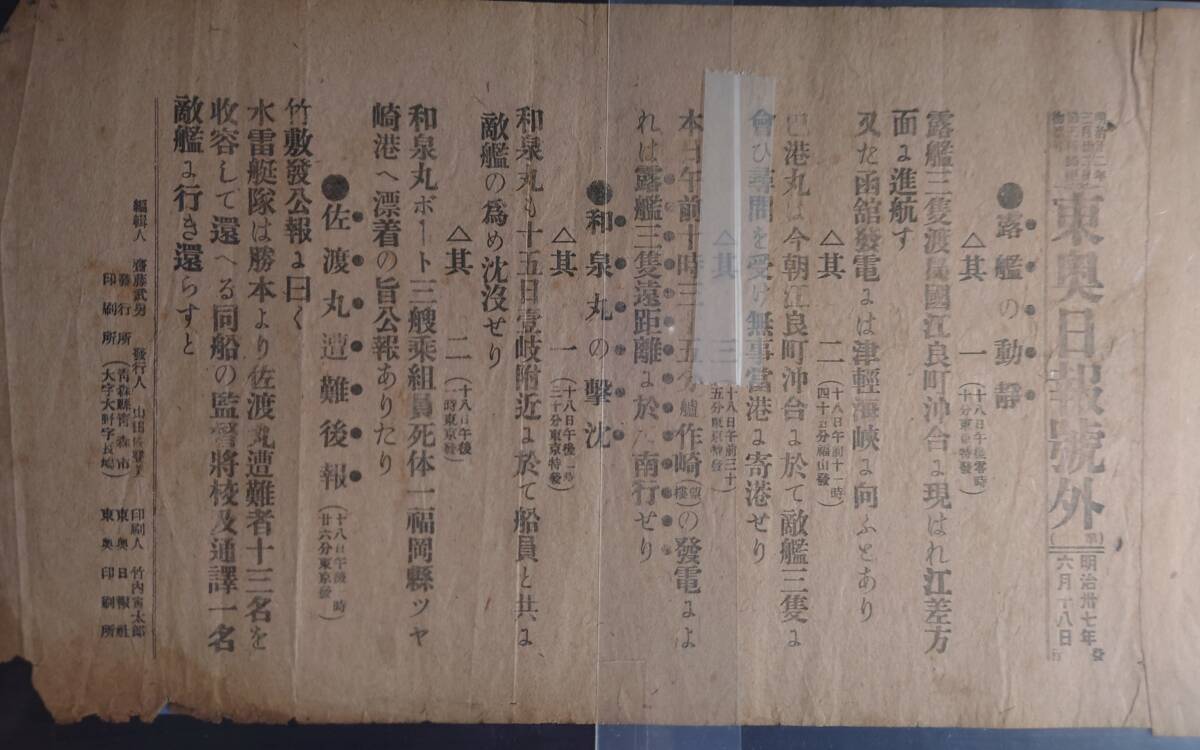 東奥日報號外
明治卅七年
六月十八日
發行
●露艦の動靜
△其一(十八日午後零時
十分東京特發)
露艦三隻渡島國江良町沖合に現はれ江差方
面に進航す
又た函舘發電には津輕海峽に向ふとあり
△其二(十八日午前十一時
四十五分福山發)
巴港丸は今朝江良町沖合に於て敵艦三隻に
會ひ尋問を受け無事當港に寄港せり
△其三(十八日午前三十
五分東京特發)
本日午前十時三十五分艫作崎(望樓)の發電によ
れは露艦三隻遠距離に於て南行せり
●和泉丸の擊沈
△其一(十八日午後一時
三十分東京特發)
和泉丸も十五日壹岐附近に於て船員と共に
敵艦の爲め沈沒せり
△其二(十八日午後
時東京特發)
和泉丸ボート三艘乘組員死体一福岡縣ツヤ
崎港へ漂着の旨公報ありたり
●佐渡丸遭難後報(十八日午後 時
廿六分東京發)
竹敷發公報に曰く
水雷艇隊は勝本より佐渡丸遭難者十三名を
收容して還へる同船の監督將校及通譯一名
敵艦に行き還らすと
編輯人 齋藤武男 發行人 山田 印刷人 竹内寅太郎
發行所(青森縣青森市 東奥日報社
印刷所(大字大野字長嶋) 東奥印刷所